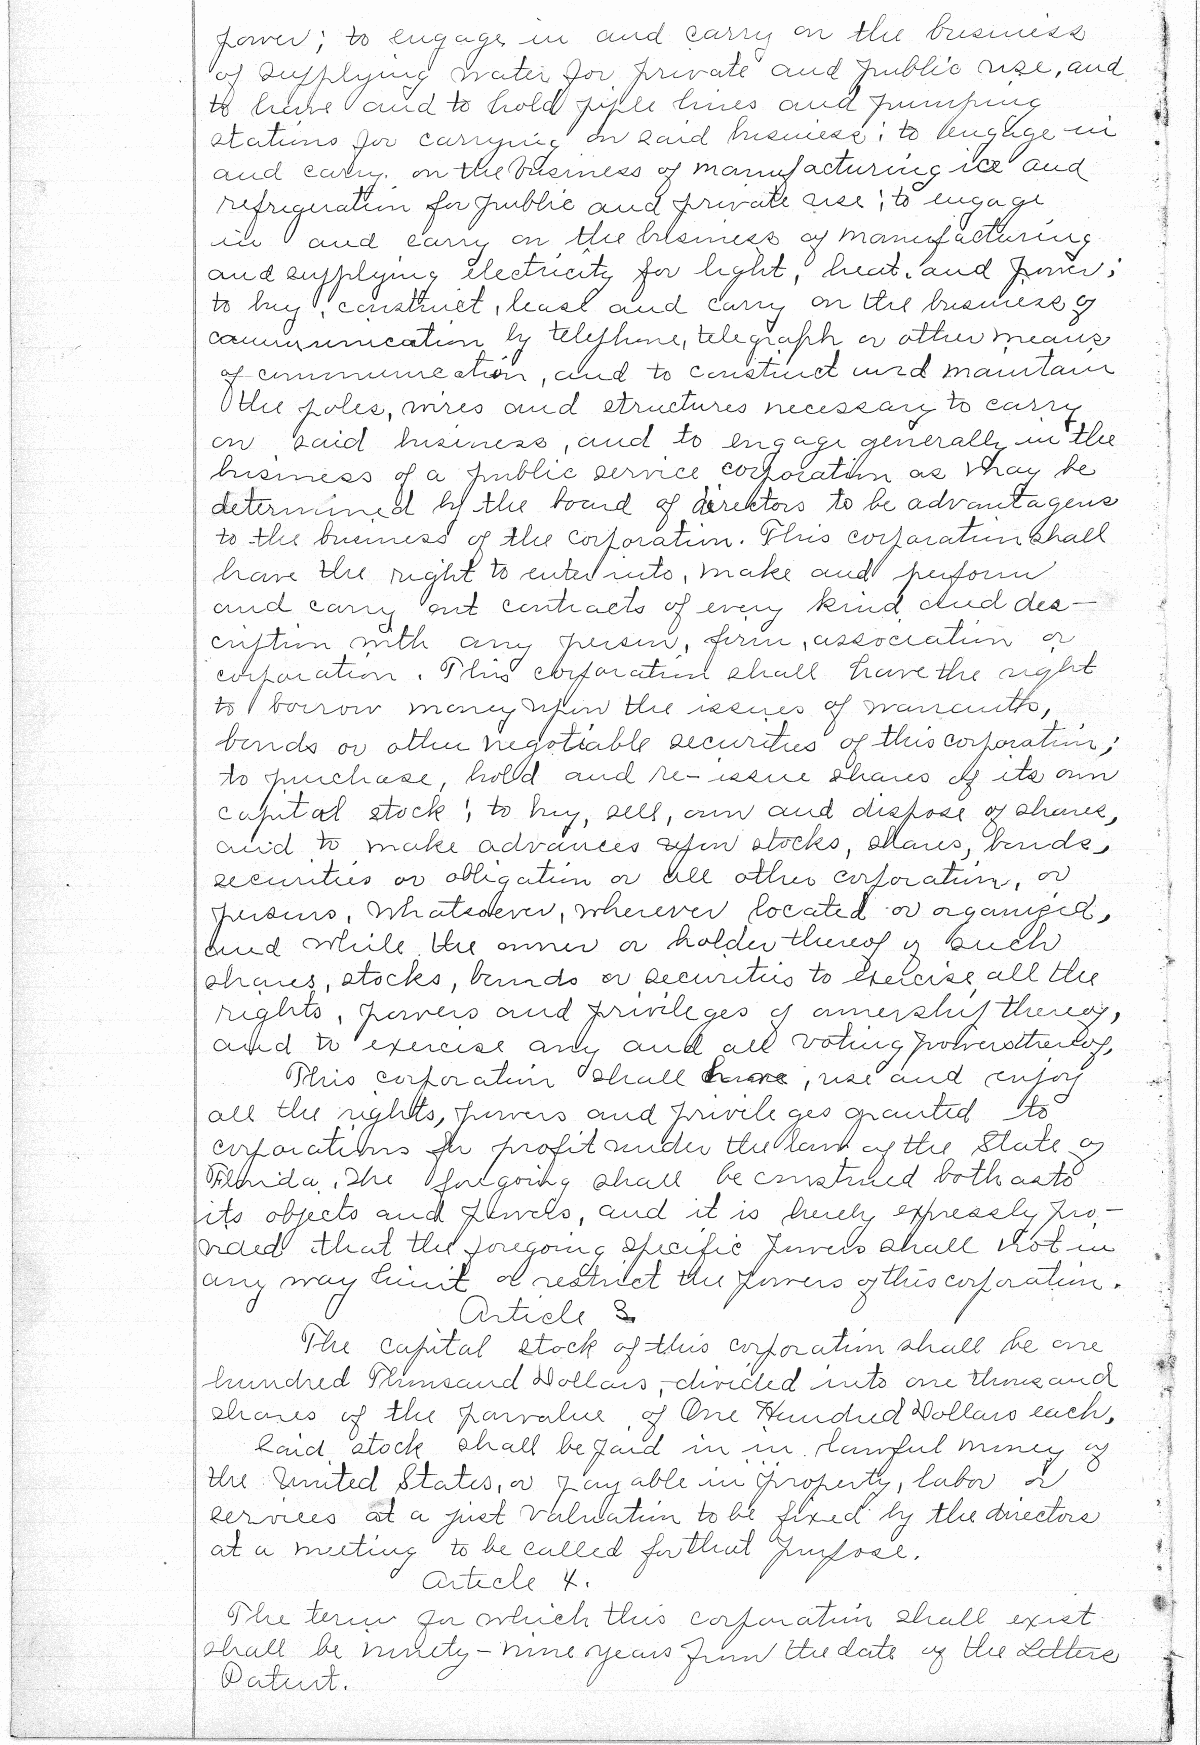 power; to engage in and carry on the business
of supplying water for private and public use, and
to have and to hold pipe lines and pumping
stations for carrying on said business; to engage in
and carry on the business of manufacturing ice and
refrigeration for public and private use; to engage
in and carry on the business of manufacturing
and supplying electricity for light, heat, and power;
to buy, construct, lease and carry on the business of
communication by telephone, telegraph or other means
of communication, and to construct and maintain
the poles, wires and structures necessary to carry
on said business, and to engage generally in the
business of a public service corporation as may be
determined by the board of directors to be advantageus
to the business of the corporation. This corporation shall
have the right to enter into, make and perform
and carry out contracts of every kind and des-
cription with any person, firm, association or
corporation. This corporation shall have the right
to borrow money upon the issues of warrants,
bonds or other negotiable securities of this corporation;
to purchase, hold and re-issue shares of its own
capital stock; to buy, sell, own and dispose of shares,
and to make advances upon stocks, shares, bonds,
securities or obligation or all other corporation, or
persons, whatsoever, wherever located or organized,
and while the owner or holder thereof of such
shares, stocks, bonds or securities to exercise all the
rights, powers and privileges of ownership thereof,
and to exercise any and all voting powers thereof.
This corporation shall have, use and enjoy
all the rights, powers and privileges granted to
corporations for profit under the law of the State of
Florida. The foregoing shall be construed both as to
its objects and powers, and it is hereby expressly pro-
vided that the foregoing specific powers shall not in
any way limit or restrict the powers of this corporation.
Article 3
The capital stock of this corporation shall be one
hundred Thousand Dollars, divided into one thousand
shares of the par value of One Hundred Dollars each,
Said stock shall be paid in in lawful money of
the United States, or payable in property, labor or
services at a just valuation to be fixed by the directors
at a meeting to be called for that purpose.
Article 4.
The term for which this corporation shall exist
shall be ninety-nine years from the date of the Letters
Patent.